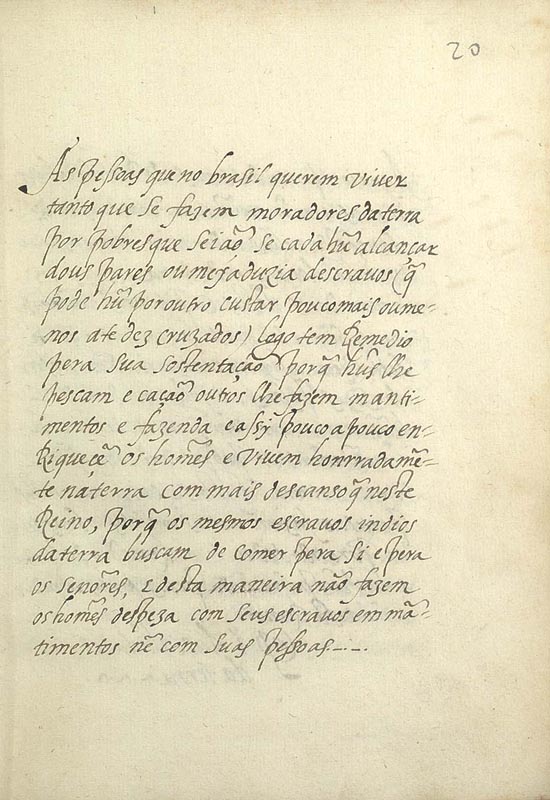 20
As pessoas que no brasil querem viver
tanto que se fazem moradores da terra
por pobres que seiaõ se cada hũ alcançar
dous pares ou meya duzia descravos (q̃
pode hũ por outro custar pouco mais ou me=
nos ate dez cruzados) logo tem Remedio
pera sua sostentação porq̃ hũs lhe
pescam e caçaõ outros lhe fazem manti=
mentos e fazenda e assy pouco a pouco en=
Riquecẽ os homẽs e vivem honrradamẽ=
te na terra com mais descanso q̃ neste
Reino, porq̃ os mesmos escravos indios
da terra buscam de comer pera si e pera
os senores, e desta maneira não fazem
os homẽs despeza com seus escravos em mã=
timentos nẽ com suas pessoas_._.